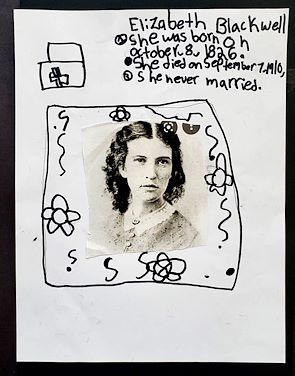 Elizabeth Blackwell
she was born on
october. 8, 1826.
She died on September 7, 1910,
she never married.